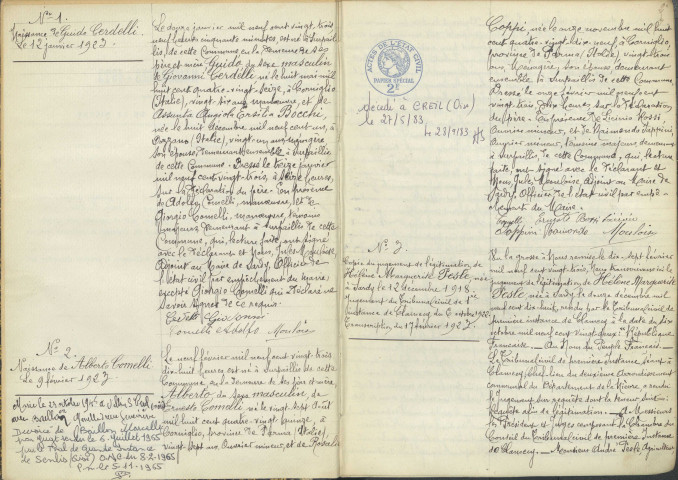 No 1.
Naissance de Guido Cerdelli.
Le 12 janvier 1923.
Le douze janvier mil neuf cent vingt-trois
de cette Commune, en la demeure de ses
père et mère Guido, du sexe masculin de
Giovanni Cerdelli né le huit mai mil
huit cent quatre-vingt-seize, à Corniglio
(Italie), vingt-six ans, manœuvre, et de
Assunta Bocchi,
née le huit décembre mil neuf cent un, à
(Italie), vingt-un ans, ménagère
son épouse, demeurant ensemble, à Surpaillis
de cette Commune. Dressé le treize janvier
mil neuf cent vingt-trois, à heures,
sur la déclaration du père. En présence
de Adolfo Comelli, manœuvre, et de
Giorgio Comelli, manœuvre, témoins
majeurs, demeurant à Surpaillis de cette
Commune, qui, lecture faite, ont signé
avec le déclarant et Nous, Jules Mouloise
Adjoint au Maire de Sardy, Officier de
l'état civil par empêchement du Maire
excepté Giorgio Comelli qui a déclaré ne
savoir signer de ce requis.
Giovanni
Comelli Adolfo Mouloise
No 2.
Naissance de Alberto Comelli
Le 9 février 1923
Marié le 23 octobre
avec Baillon
Divorcé de Baillon Marcelle
par jugt rendu le 6 juillet 1965
par le Trial de Gde Instance
de Senlis (Oise) 8-2-1965
5-11-1965
Le neuf février mil neuf cent vingt-trois
dix-huit heures est né à Surpaillis de cette
Commune, en la demeure de ses père et mère
Alberto, du sexe masculin, de
Ernesto Comelli né le vingt-sept août
mil huit cent quatre-vingt-quinze, à
Corniglio, province de Parma (Italie)
vingt-sept ans, ouvrier mineur, et de Rosalia
ACTES DE L'ETAT CIVIL
PAPIER SPECIAL
2F
Décédé à CREIL (Oise)
le 27/5/83
le 28/9/83
No 3.
Copie du jugement de légitimation de
Hélène Marguerite Teste, née
à Sardy le 12 décembre 1918.
Jugement du Tribunal civil de 1re
instance de Clamecy du 6 octobre 1922
Transcription, du 17 février 1923.
Coppi, née le onze novembre mil huit
cent quatre-vingt-dix-neuf, à Corniglio,
(province de Parma, Italie) vingt-trois
ans, ménagère, son épouse, demeurant
ensemble, à Surpaillis de cette Commune
Dressé, le onze février mil neuf cent
vingt-trois, heures, sur la déclaration
du père. En présence de Rossi,
ouvrier mineur, et de Raimondo Coppini
ouvrier mineur, témoins majeurs, demeurant
à Surpaillis de cette Commune, qui, lecture
faite, ont signé avec le déclarant et
Nous, Jules Mouloise, Adjoint au Maire de
Sardy, Officier de l'état civil par empê-
chement du Maire.
Coppini Raimondo Mouloise
Vu la grosse à Nous remise le dix-sept février
mil neuf cent vingt-trois, Nous transcrivons ici le
jugement de légitimation de Hélène Marguerite
Teste née à Sardy, le douze décembre mil
neuf cent dix-huit, rendu par le Tribunal civil de
première instance de Clamecy à la date du six
octobre mil neuf cent vingt-deux. République
Française. Au Nom du Peuple Français.
Le Tribunal civil de première instance séant à
Clamecy, chef-lieu du deuxième arrondissement
communal du Département de la Nièvre, a rendu
le jugement sur requête dont la teneur suit:
Requête afin de légitimation. A Messieurs
les Président et juges composant la Chambre du
Conseil du Tribunal civil de première instance
de Clamecy. Monsieur André Teste, Agriculteur